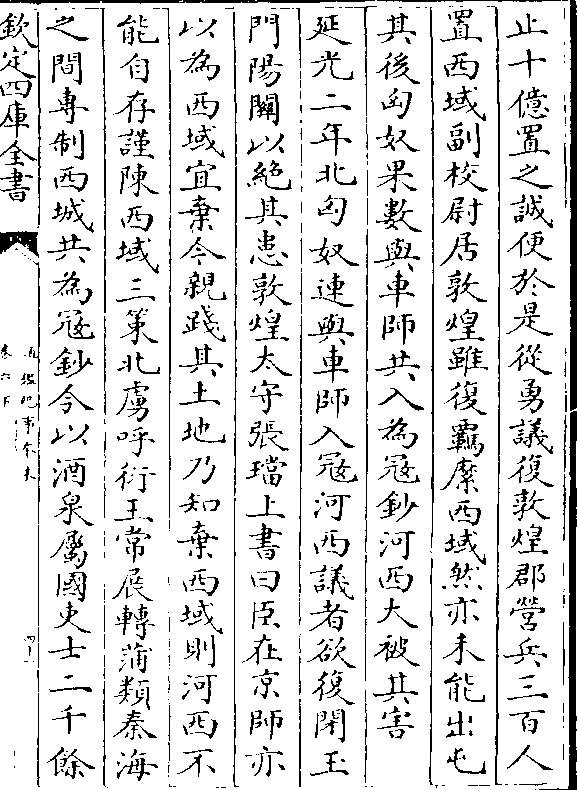 止十億置之誠便於是從勇議復敦煌郡營兵三百人
置西域副校尉居敦煌雖復羈縻西域然亦未能出屯
其後匈奴果數與車師共入為寇鈔河西大被其害
延光二年北匈奴連與車師入寇河西議者欲復閉玉
門陽關以絶其患敦煌太守張璫上書曰臣在京師亦
以為西域宜棄今親踐其土地乃知棄西域則河西不
能自存謹陳西域三策北虜呼衍王常展轉蒲類秦海
之間專制西城共為寇鈔今以酒泉屬國吏士二千餘
欽定四庫全書
通鑑紀事本末
卷六下